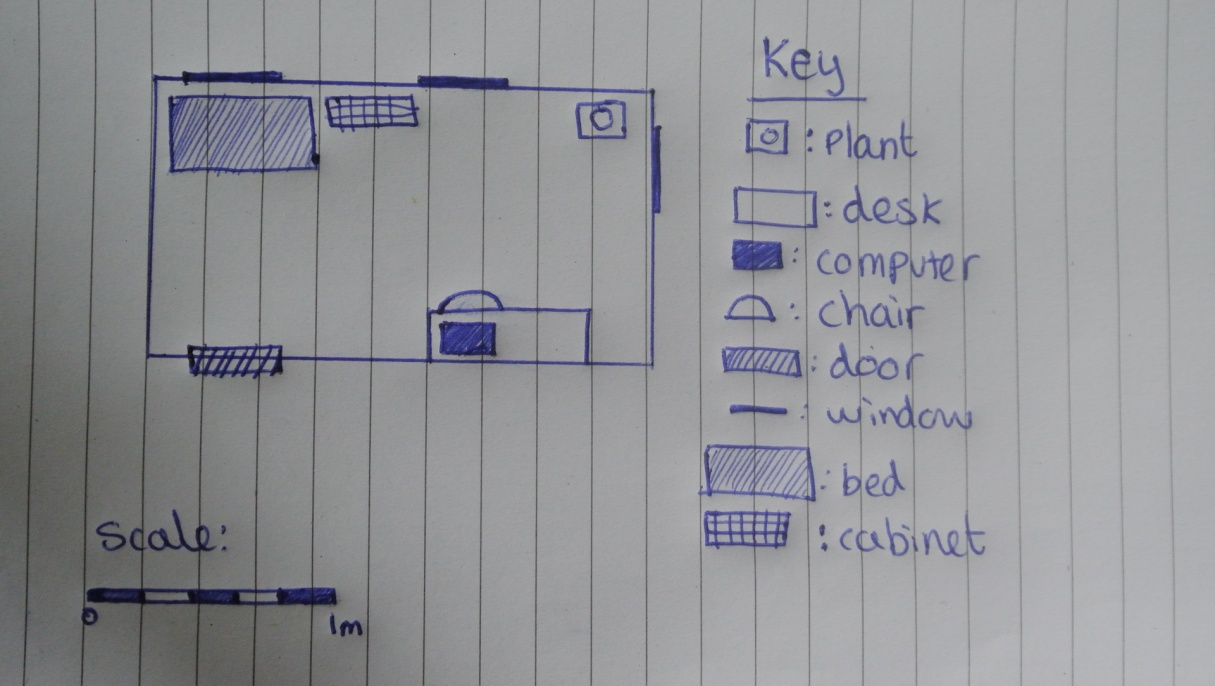 Key
: plant
: desk
: computer
: chair
: door
: window
: bed
: cabinet
Scale:
0 1m